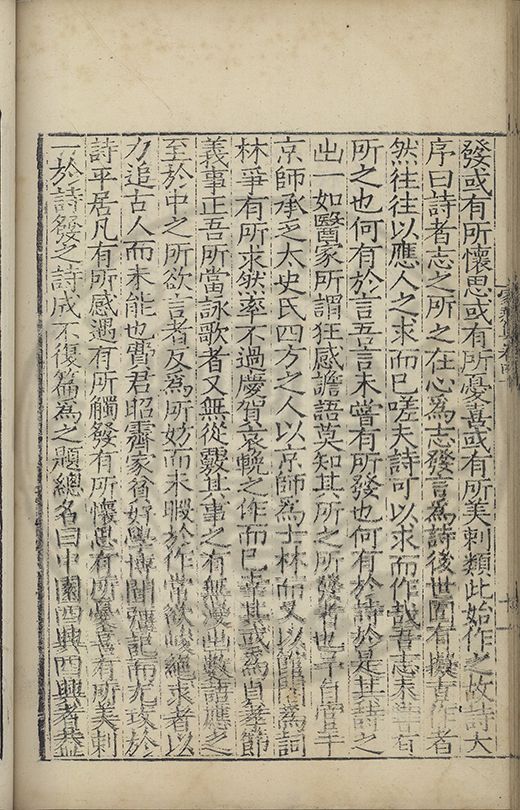 發或有所懷思或有所憂喜或有所美刺類此始作之故詩大
序曰詩者志之所之在心為志發言為詩後世固有擬古作者
然往往以應人之求而已嗟夫詩可以求而作哉吾志未嘗有
所之也何有於言吾言未嘗有所發也何有於詩於是其詩之
出一如醫家所謂狂感譫語莫知其所之所發者也予自官于
京師承乏太史氏四方之人以京師為士林而又以館閣為詞
林爭有所求然率不過慶賀哀輓之作而已其或為貞孝節
義事正吾所當詠歌者又無從覈其事之有無漫出數語應之
至於中之所欲言者反為所妨而未暇於作常欲峻絕求者以
力追古人而未能也費君昭霽家貧好學博聞彊記而尤攻於
詩平居凡有所感遇有所觸發有所懷思有所憂喜有所美刺
一於詩發之詩成不復篇為之題總名曰中園四興四興者